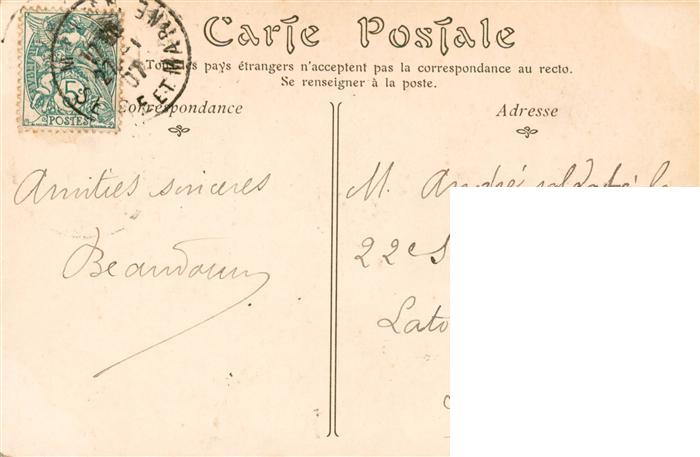 Carte Postale
Tous les pays étrangers n'acceptent pas la correspondance au recto.
Se renseigner à la poste.
Correspondance
Adresse
5c
POSTES
ET MARNE
07
Amitiés sincères
M. André soldat à la
22e S